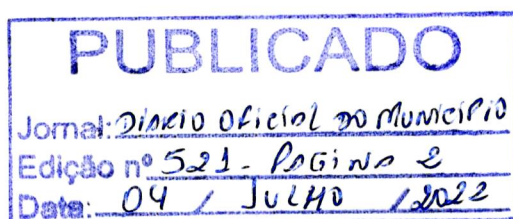 PUBLICADO
Jornal: Diário Oficial do Município
Edição nº 521 - PAGINA 2
Data: 04 / JULHO / 2022